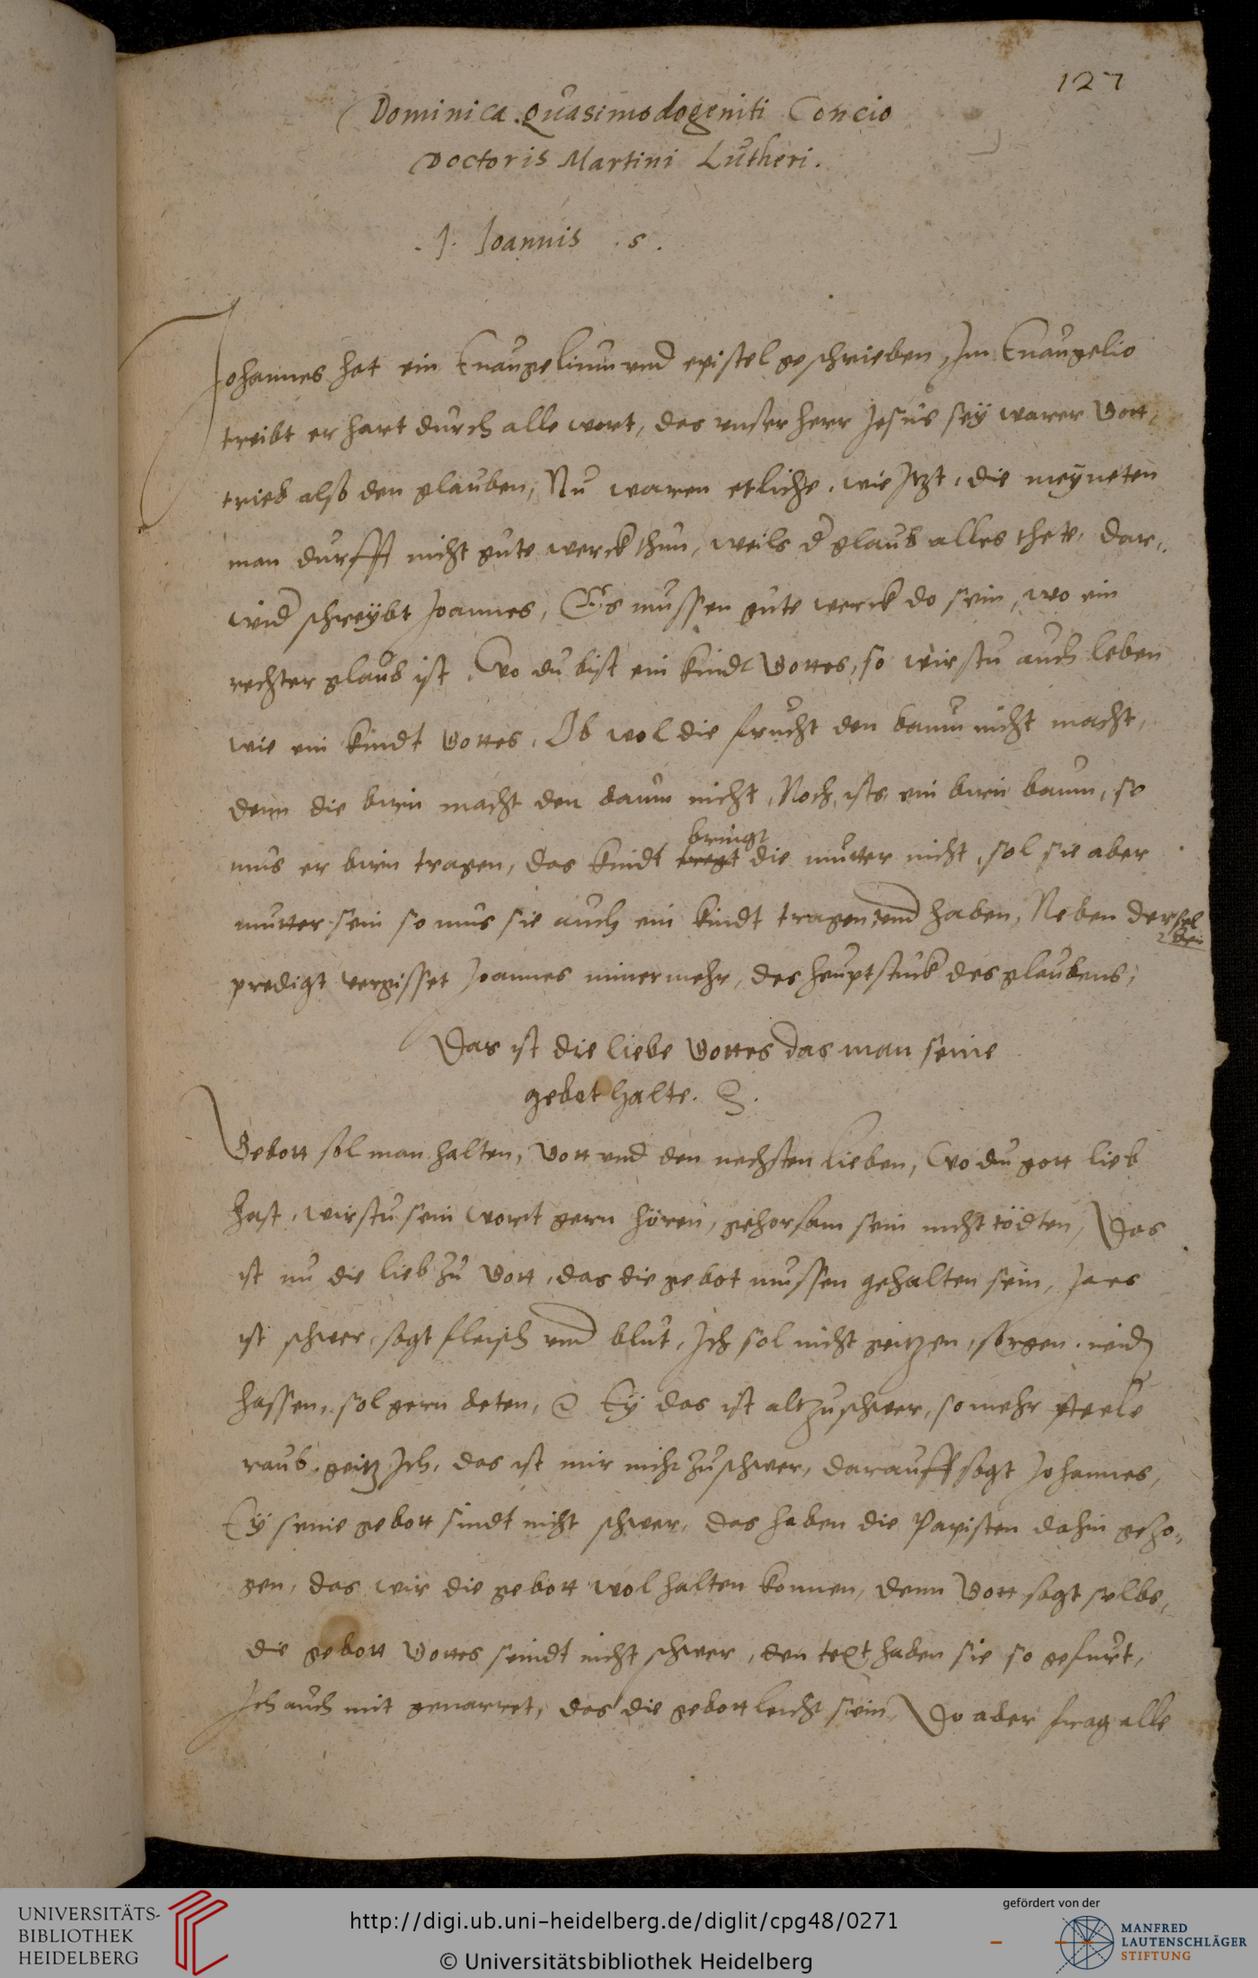 127
Dominica Quasimodogeniti Concio
Doctoris Martini Lutheri.
.1. Joannis .5.
Johannes hat ein Euangelium vnd epistel geschrieben, Im Euangelio
treibt er hart durch alle wort, das vnser herr Jesus sey warer Gott,
trieb also den glauben, Nu waren etliche, wie Itzt, die meyneten
man durfft nicht gute werck thun, weils d glaub alles thete, dar„
wid schreybt Joannes, Es mussen gute werck do sein, wo ein
rechter glaub ist, Wo du bist ein kindt Gottes, so wirstu auch leben
wie ein kindt Gottes, Ob wol die frucht den baum nicht macht,
denn die birn macht den baum nicht, Noch ists ein birn baum, so
bringt
mus er birn tragen, das kindt tregt die mutter nicht, sol sie aber
mutter sein so mus sie auch ein kindt tragen vnd haben, Neben dersel
ben
predigt vergisset Joannes nimermehr, des heuptstuck des glaubens,
Das ist die liebe Gottes das man seine
gebot halte.
Gebott sol man halten, Gott vnd den nechsten lieben, Wo du gott lieb
hast, wirstu sein wort gern hören, gehorsam sein nicht tödten, Das
ist nu die lieb zu Gott, das die gebot mussen gehalten sein, Ja es
ist schwer, sagt fleisch vnd blut, Ich sol nicht geitzen, sorgen, neid
hassen, sol gern beten, Ey das ist altzuschwer, so mehr stele
raub, geitz Ich, das ist mir nicht zuschwer, darauff sagt Johannes,
Ey seine gebott sindt nicht schwer, das haben die Papisten dahin gezo„
gen, das wir die gebott wol halten konnen, denn Gott sagt selbs,
die gebott Gottes seindt nicht schwer, den text haben sie so gefurt,
Ich auch mit genarret, das die gebott leicht sein, Do aber frag alle
UNIVERSITÄTS-
BIBLIOTHEK
HEIDELBERG
http://digi.ub.uni-heidelberg.de/diglit/cpg48/0271
© Universitätsbibliothek Heidelberg
gefördert von der
MANFRED
LAUTENSCHLÄGER
STIFTUNG